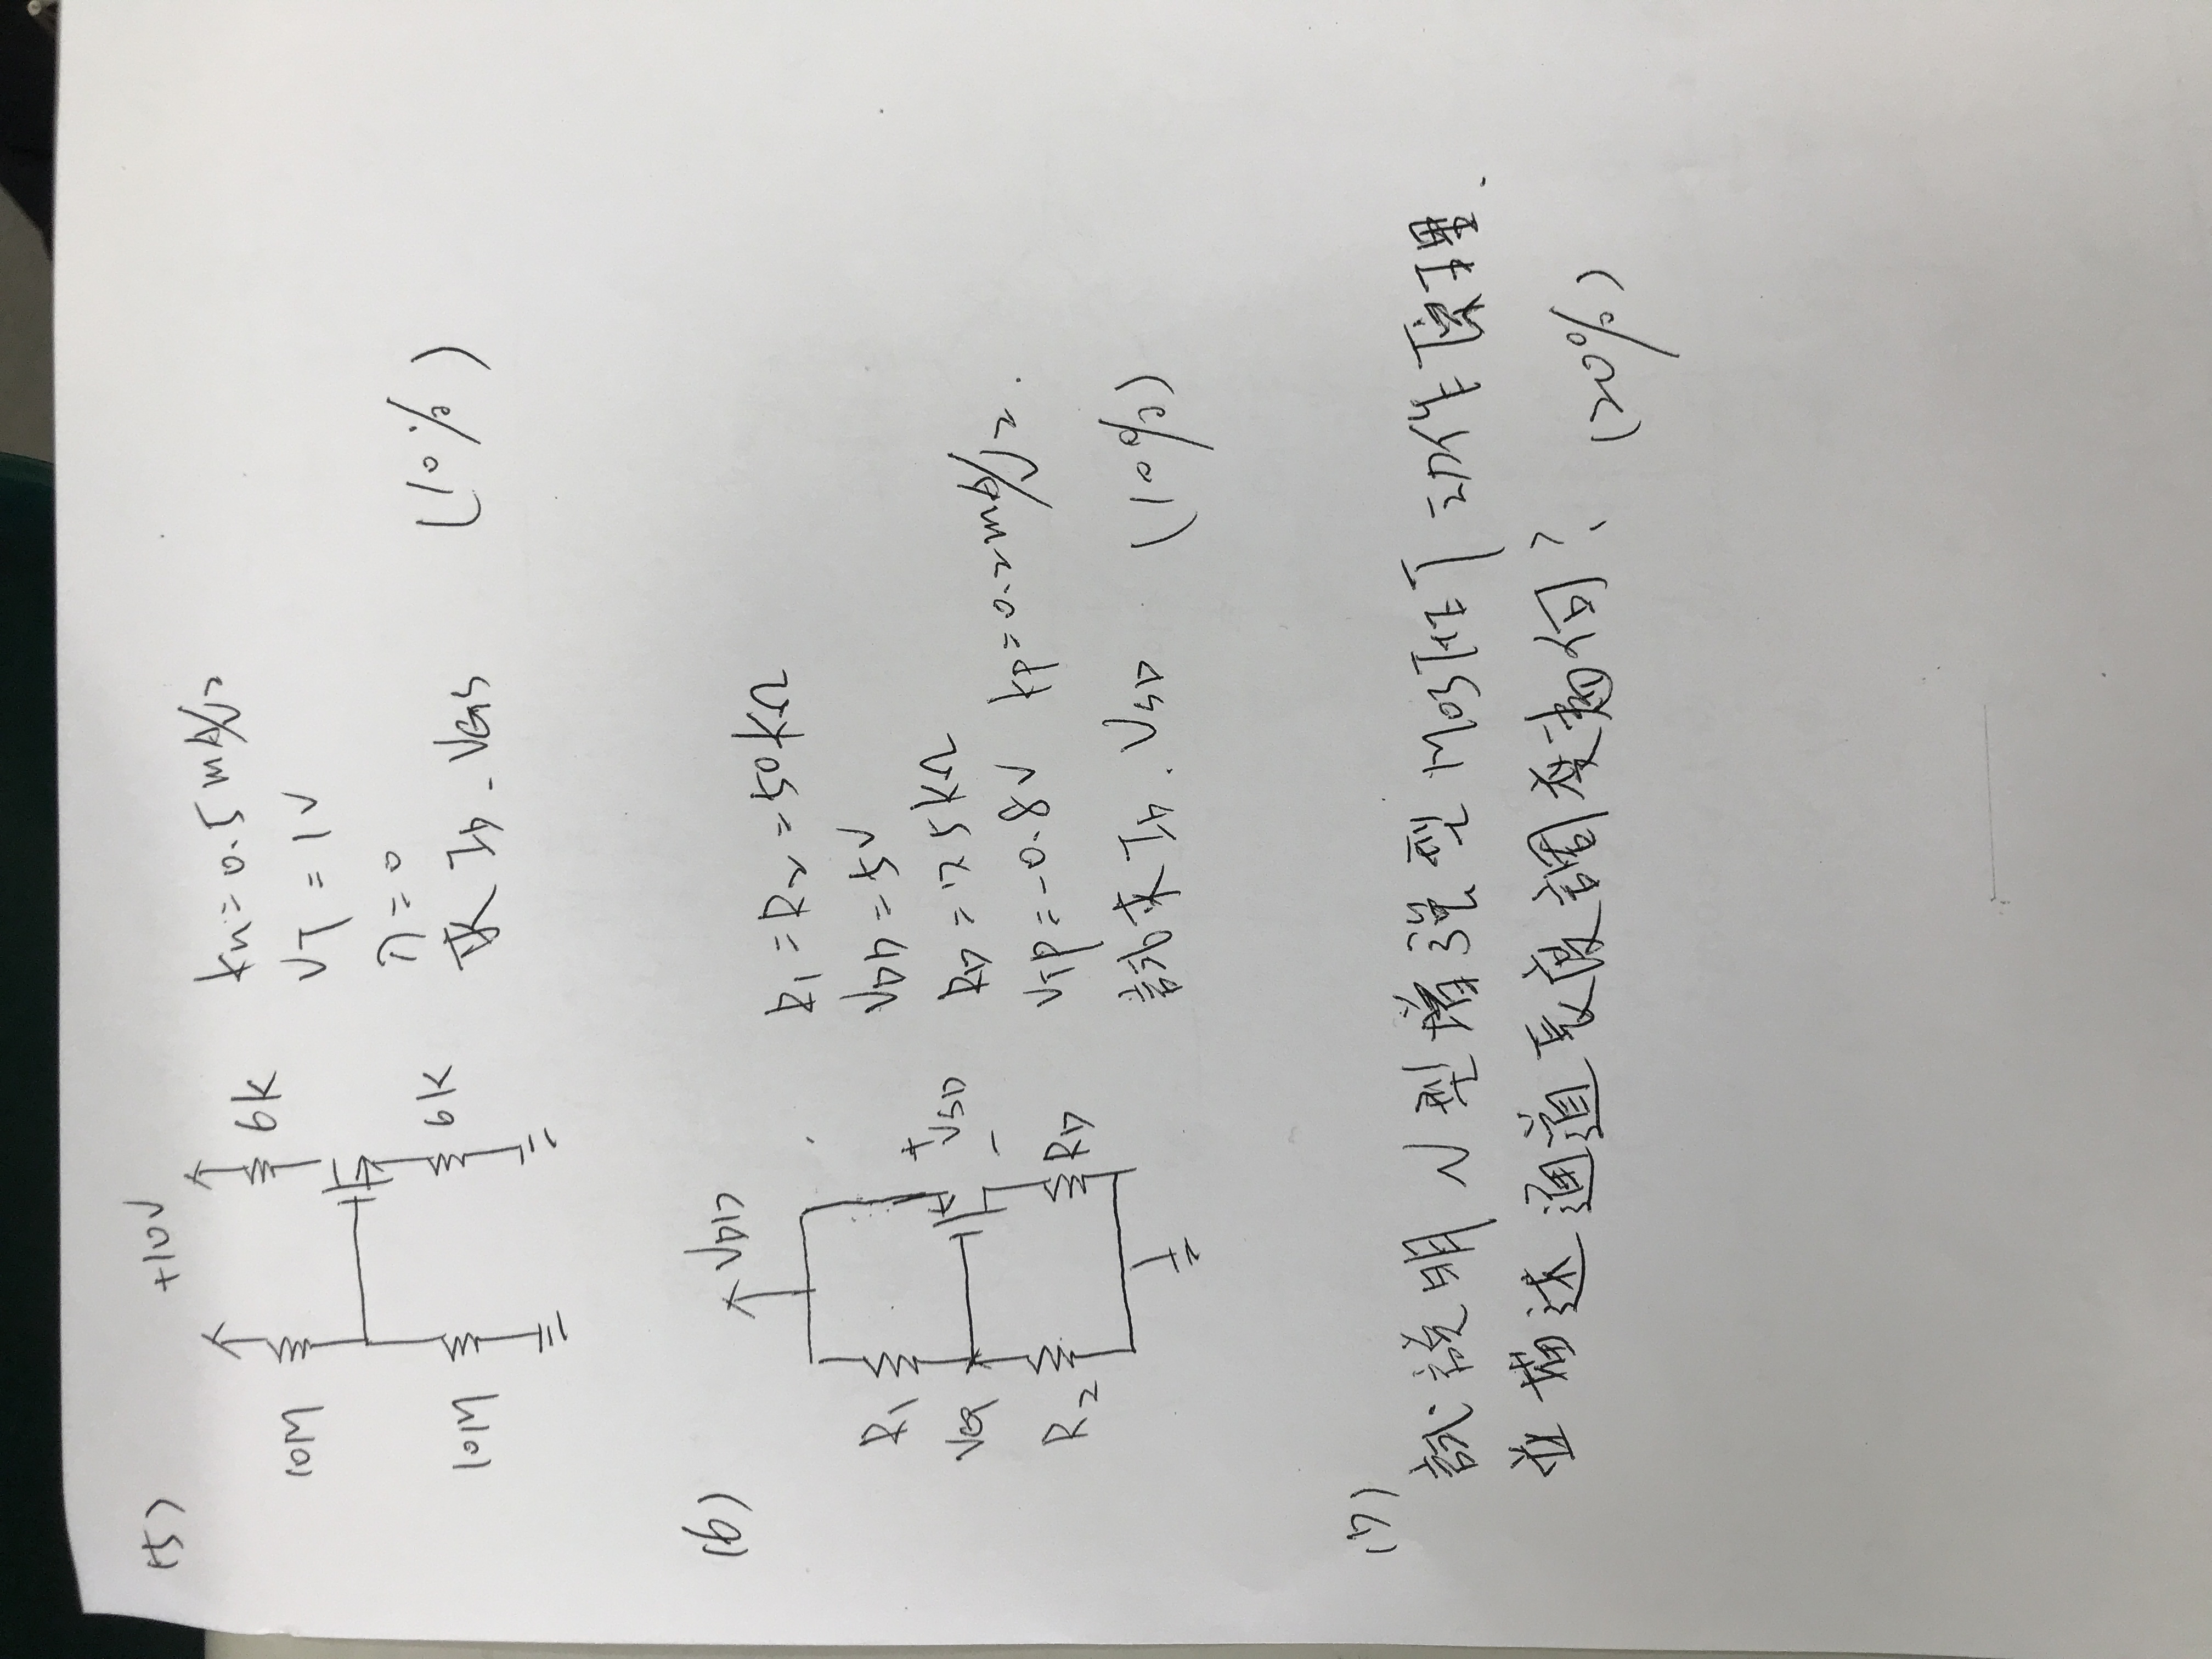 (5)
+10V
10M
6k
10M
6k
kn=0.5mA/V2
VT=1V
λ=0
求 ID.VGS
(10%)
(6)
VDD
R1
VG
R2
+
VSD
-
RD
R1=R2=50kΩ
VDD=5V
RD=7.5kΩ
VTP=-0.8V kp=0.2mA/V2.
試求 ID.VSD (10%)
(7)
試說明 N型增強型 MOSFET 动作原理.
並描述通道長度調變為何? (20%)